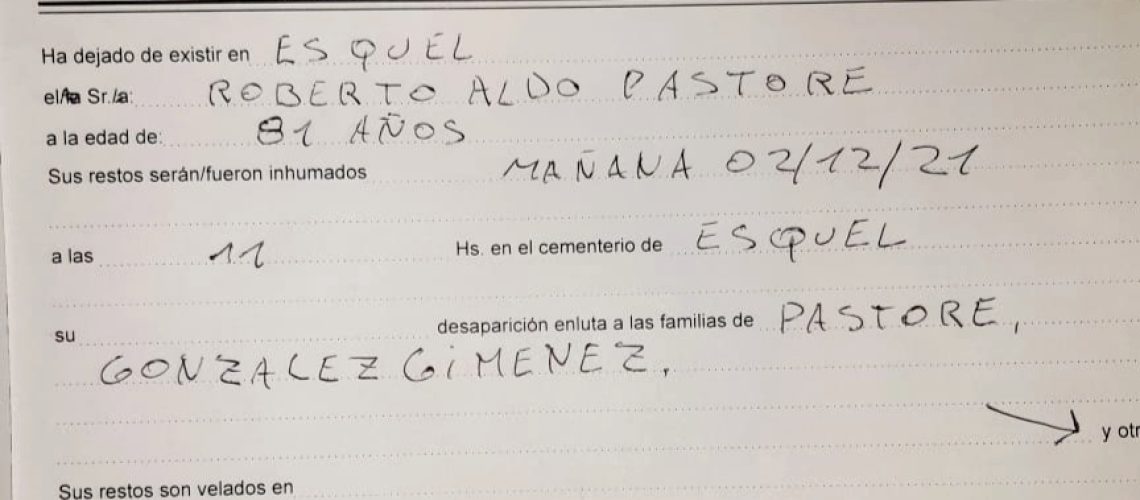 Ha dejado de existir en ESQUEL
el/la Sr./a: ROBERTO ALDO PASTORE
a la edad de: 81 AÑOS
Sus restos serán/fueron inhumados MAÑANA 02/12/21
a las 11 Hs. en el cementerio de ESQUEL
su desaparición enluta a las familias de PASTORE,
GONZALEZ GIMENEZ.
y otr
Sus restos son velados en